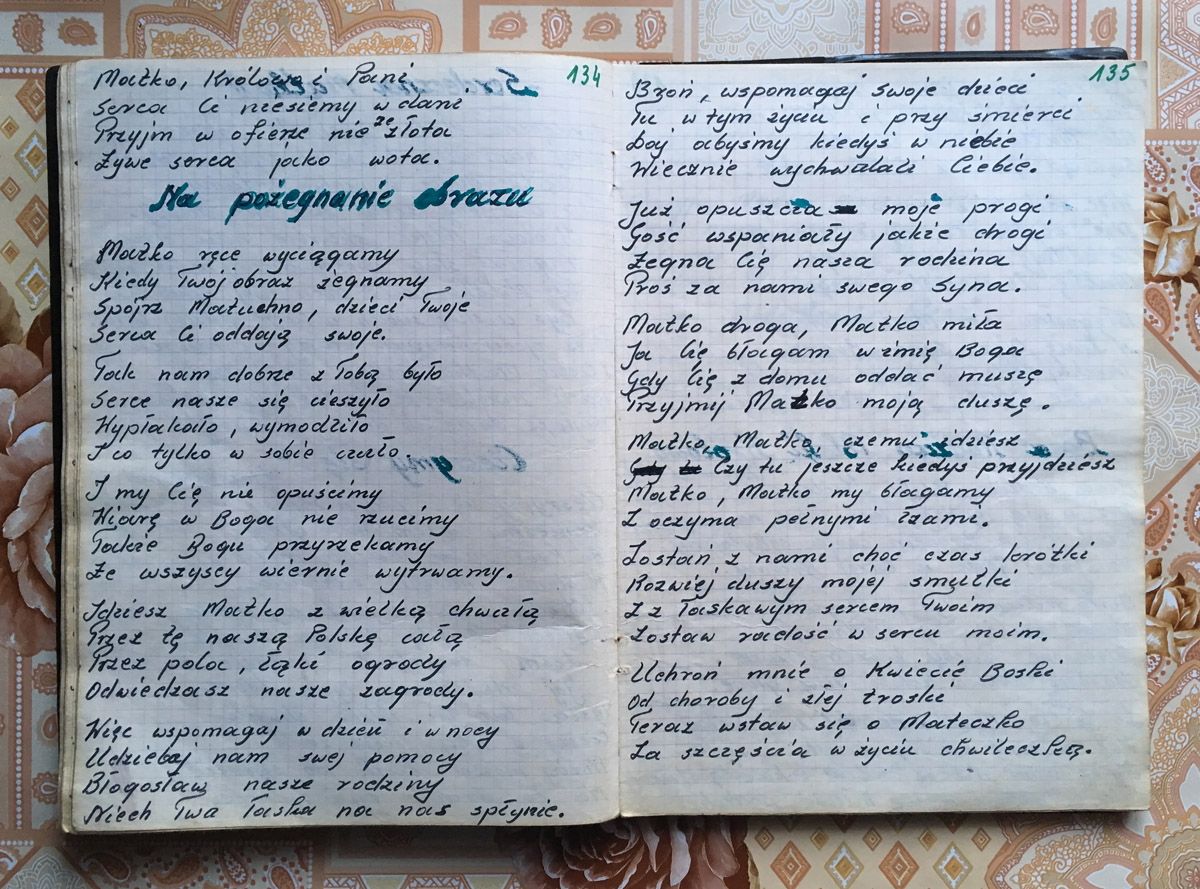 134
Matko, Królowo i Pani
Serca Ci niesiemy w dani
Przyjm w ofierze nie ze złota
Żywe serca jako wota.
Na pożegnanie obrazu
Matko ręce wyciągamy
Kiedy Twój obraz żegnamy
Spójrz Matuchno, dzieci Twoje
Serca Ci oddają swoje.
Tak nam dobrze z Tobą było
Serce nasze się cieszyło
Wypłakało, wymodliło
I co tylko w sobie czuło.
I my Cię nie opuścimy
Wiarę w Boga nie rzucimy
Takie Bogu przyrzekamy
Że wszyscy wiernie wytrwamy.
Idziesz Matko z wielką chwałą
Przez tę naszą Polskę całą
Przez pola, łąki ogrody
Odwiedzasz nasze zagrody.
Więc wspomagaj w dzień i w nocy
Udzielaj nam swej pomocy
Błogosław nasze rodziny
Niech Twa Łaska na nas spłynie.
135
Broń, wspomagaj swoje dzieci
Tu w tym życiu i przy śmierci
Daj abyśmy kiedyś w niebie
Wiecznie wychwalali Ciebie.
Już opuszcza moje progi
Gość wspaniały jakże drogi
Żegna Cię nasza rodzina
Proś za nami swego Syna.
Matko droga, Matko miła
Ja Cię błagam w imię Boga
Gdy Cię z domu oddać muszę
Przyjmij Matko moją duszę.
Matko, Matko, czemu idziesz
Czy tu jeszcze kiedyś przyjdziesz
Matko, Matko my błagamy
Z oczyma pełnymi łzami.
Zostań z nami choć czas krótki
Rozwiej duszy mojej smutki
I z Łaskawym sercem Twoim
Zostaw radość w sercu moim.
Uchroń mnie o Kwiecie Boski
Od choroby i złej troski
Teraz wstaw się o Mateczko
Za szczęścia w życiu chwileczką.